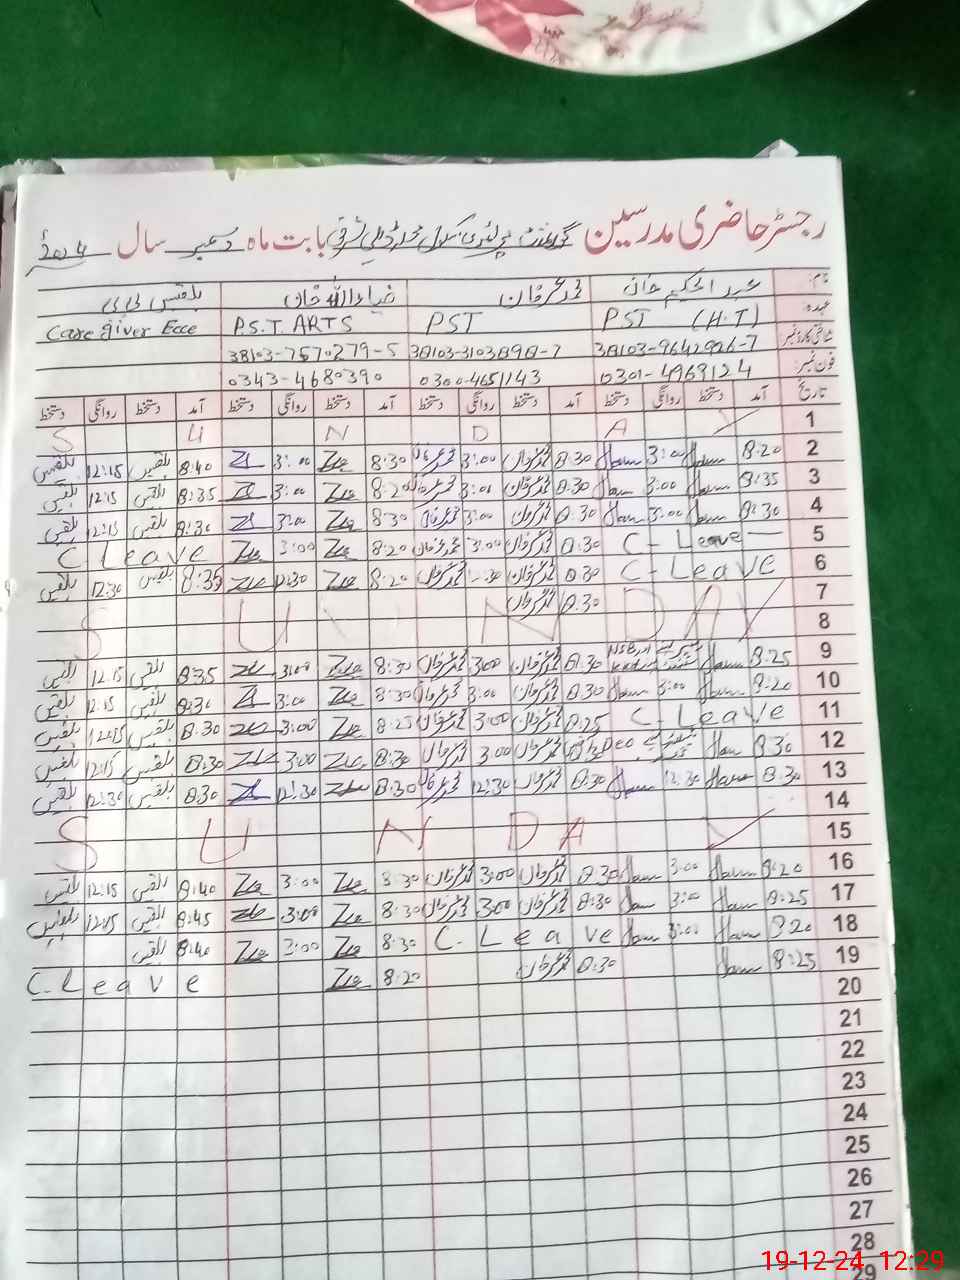 رجسٹر حاضری مدرسین گورنمنٹ پرائمری سکول محلہ شرقی بابت ماہ دسمبر سال 2024
نام: عبدالحکیم خان محمد عرفان ضیاءاللہ خان بلقیس بی بی
عہدہ PST (H.T) PST P.S.T. ARTS Care giver Ecce
شناختی کارڈ نمبر 38103-9642926-7 38103-3103898-7 38103-7570279-5
فون نمبر 0301-4969124 0300-4651143 0343-4680390
تاریخ آمد دستخط روانگی دستخط آمد دستخط روانگی دستخط آمد دستخط روانگی دستخط آمد دستخط روانگی دستخط
1 S U N D A Y
2 8:20 3:00 8:30 محمد عرفان 3:00 محمد عرفان 8:30 3:00 8:40 بلقیس 12:15 بلقیس
3 8:35 3:00 8:30 محمد عرفان 3:01 محمد عرفان 8:20 3:00 8:35 بلقیس 12:15 بلقیس
4 8:30 3:00 8:30 محمد عرفان 3:00 محمد عرفان 8:30 3:00 8:30 بلقیس 12:15 بلقیس
5 C- Leave 8:30 محمد عرفان 3:00 محمد عرفان 8:20 3:00 C Leave
6 C- Leave 8:30 محمد عرفان 12:30 محمد عرفان 8:20 12:30 8:35 بلقیس 12:30 بلقیس
7 8:30 محمد عرفان
8 S U N D A Y
9 8:25 8:30 محمد عرفان 3:00 محمد عرفان 8:30 3:00 8:35 بلقیس 12:15 بلقیس
10 8:20 3:00 8:30 محمد عرفان 3:00 محمد عرفان 8:30 3:00 8:30 بلقیس 12:15 بلقیس
11 C- Leave 8:25 محمد عرفان 3:00 محمد عرفان 8:25 3:00 8:30 بلقیس 12:15 بلقیس
12 8:30 Deo محمد عرفان 3:00 محمد عرفان 8:30 3:00 8:30 بلقیس 12:15 بلقیس
13 8:30 12:30 8:30 محمد عرفان 12:30 محمد عرفان 8:30 12:30 8:30 بلقیس 12:30 بلقیس
14
15 S U N D A Y
16 8:20 3:00 8:30 محمد عرفان 3:00 محمد عرفان 8:30 3:00 8:40 بلقیس 12:15 بلقیس
17 8:25 3:00 8:30 محمد عرفان 3:00 محمد عرفان 8:30 3:00 8:45 بلقیس 12:15 بلقیس
18 8:20 3:01 C. Leave 8:30 3:00 8:40 بلقیس
19 8:25 8:30 محمد عرفان 8:20 C. Leave
20
21
22
23
24
25
26
27
28
29
19-12-24 12:29